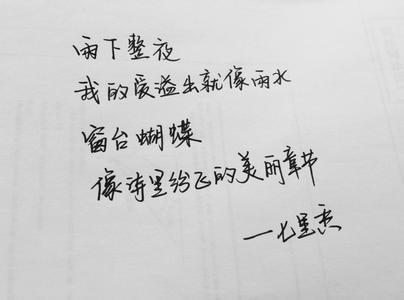 雨下整夜
我的爱溢出就像雨水
窗台蝴蝶
像诗里纷飞的美丽章节
—七里香